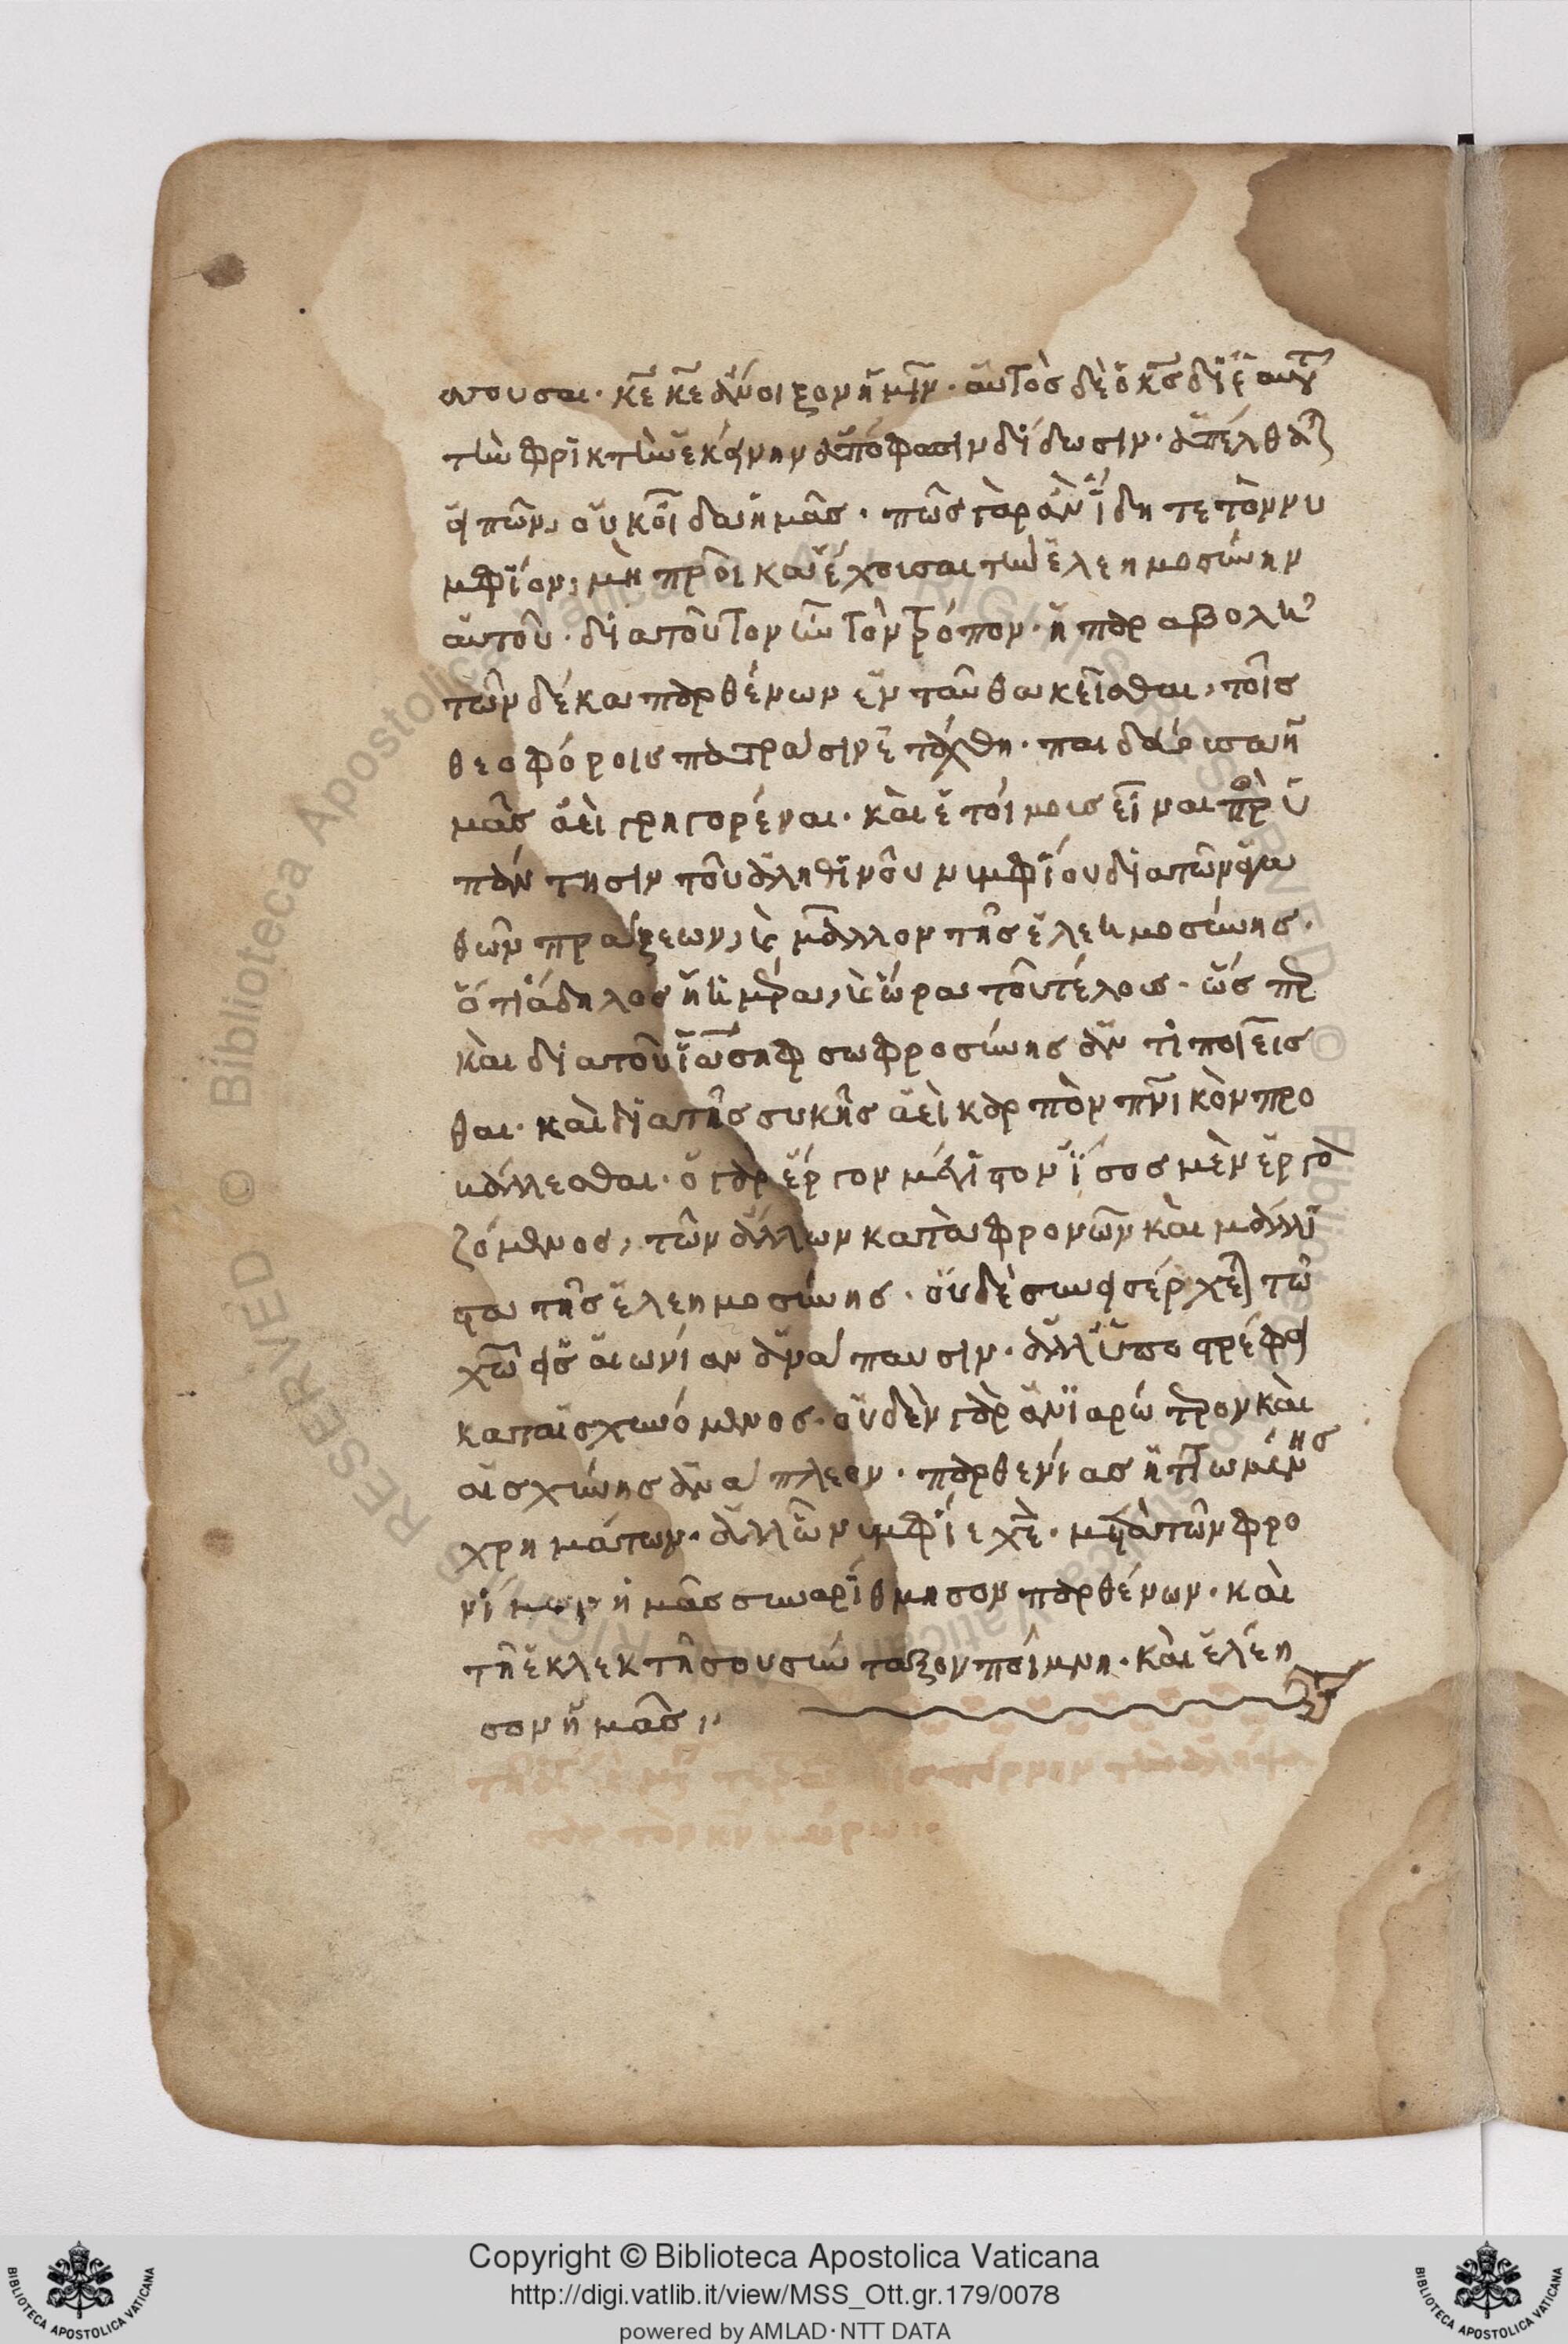 απουσαι· κ̅ε̅ κ̅ε̅ ἄνοιξον ἡμῖν· αὐτὸς δὲ ὁ κ̅ς̅ δι ἑαυτοῦ
τὴν φρικτὴν ἐκείνην ἀπόφασιν δίδωσιν· ἀπέλθατε
εἰπών, οὐκ οἶδα ἡμᾶς· πῶς γὰρ ἂν ἴδητε τὸν νυ
μφίον, μὴ προῖκα ἔχουσαι τὴν ἐλεημοσύνην
αὐτοῦ· διὰ τοῦτον οὖν τὸν τρόπον· ἡ παραβολὴ
τῶν δέκα παρθένων ἐνταῦθα κεῖσθαι, τοῖς
θεοφόροις πατράσιν ἐτάχθη· παιδεύουσα ἡ
μᾶς ἀεὶ γρηγορέναι· καὶ ἑτοίμους εἶναι πρὸς ὑ
πάντησιν τοῦ ἀληθινοῦ νυμφίου διὰ τῶν ἀγα
θῶν πράξεων, κ μᾶλλον τῆς ἐλεημοσύνης·
ὅτι ἄδηλος ἡ ἡμέρα, κ ἡ ὥρα τοῦ τέλους· ὥσπερ
καὶ διὰ τοῦ ἰωσὴφ σωφροσύνης ἀντιποιεῖσ
θαι· καὶ διὰ τῆς συκῆς ἀεὶ καρπὸν πν̅ικὸν προ
βάλλεσθαι· ὁ γὰρ ἔργον μέγιστον ἴσως μὲν ἐργα
ζόμενος, τῶν ἄλλων καταφρονῶν καὶ μάλι
στα τῆς ἐλεημοσύνης· οὐδὲ συνεισέρχεται τῷ
χ̅ω̅ εἰς αἰωνίαν ἀνάπαυσιν· ἀλλ ὑποστρέφει
καταισχυνόμενος· οὐδὲν γὰρ ἀνιαρώτερον καὶ
αἰσχύνης ἀνάπλεον· παρθενίας ἡττωμένης
χρημάτων· ἀλλ ὦ νυμφίε χ̅ε̅· μετὰ τῶν φρο
νίμων ἡμᾶς συναρίθμησον παρθένων· καὶ
τῇ ἐκλεκτῇ σου σύνταξον ποίμνῃ· καὶ ἐλέη
σον ἡμᾶς
Copyright © Biblioteca Apostolica Vaticana
http://digi.vatlib.it/view/MSS_Ott.gr.179/0078
powered by AMLAD · NTT DATA